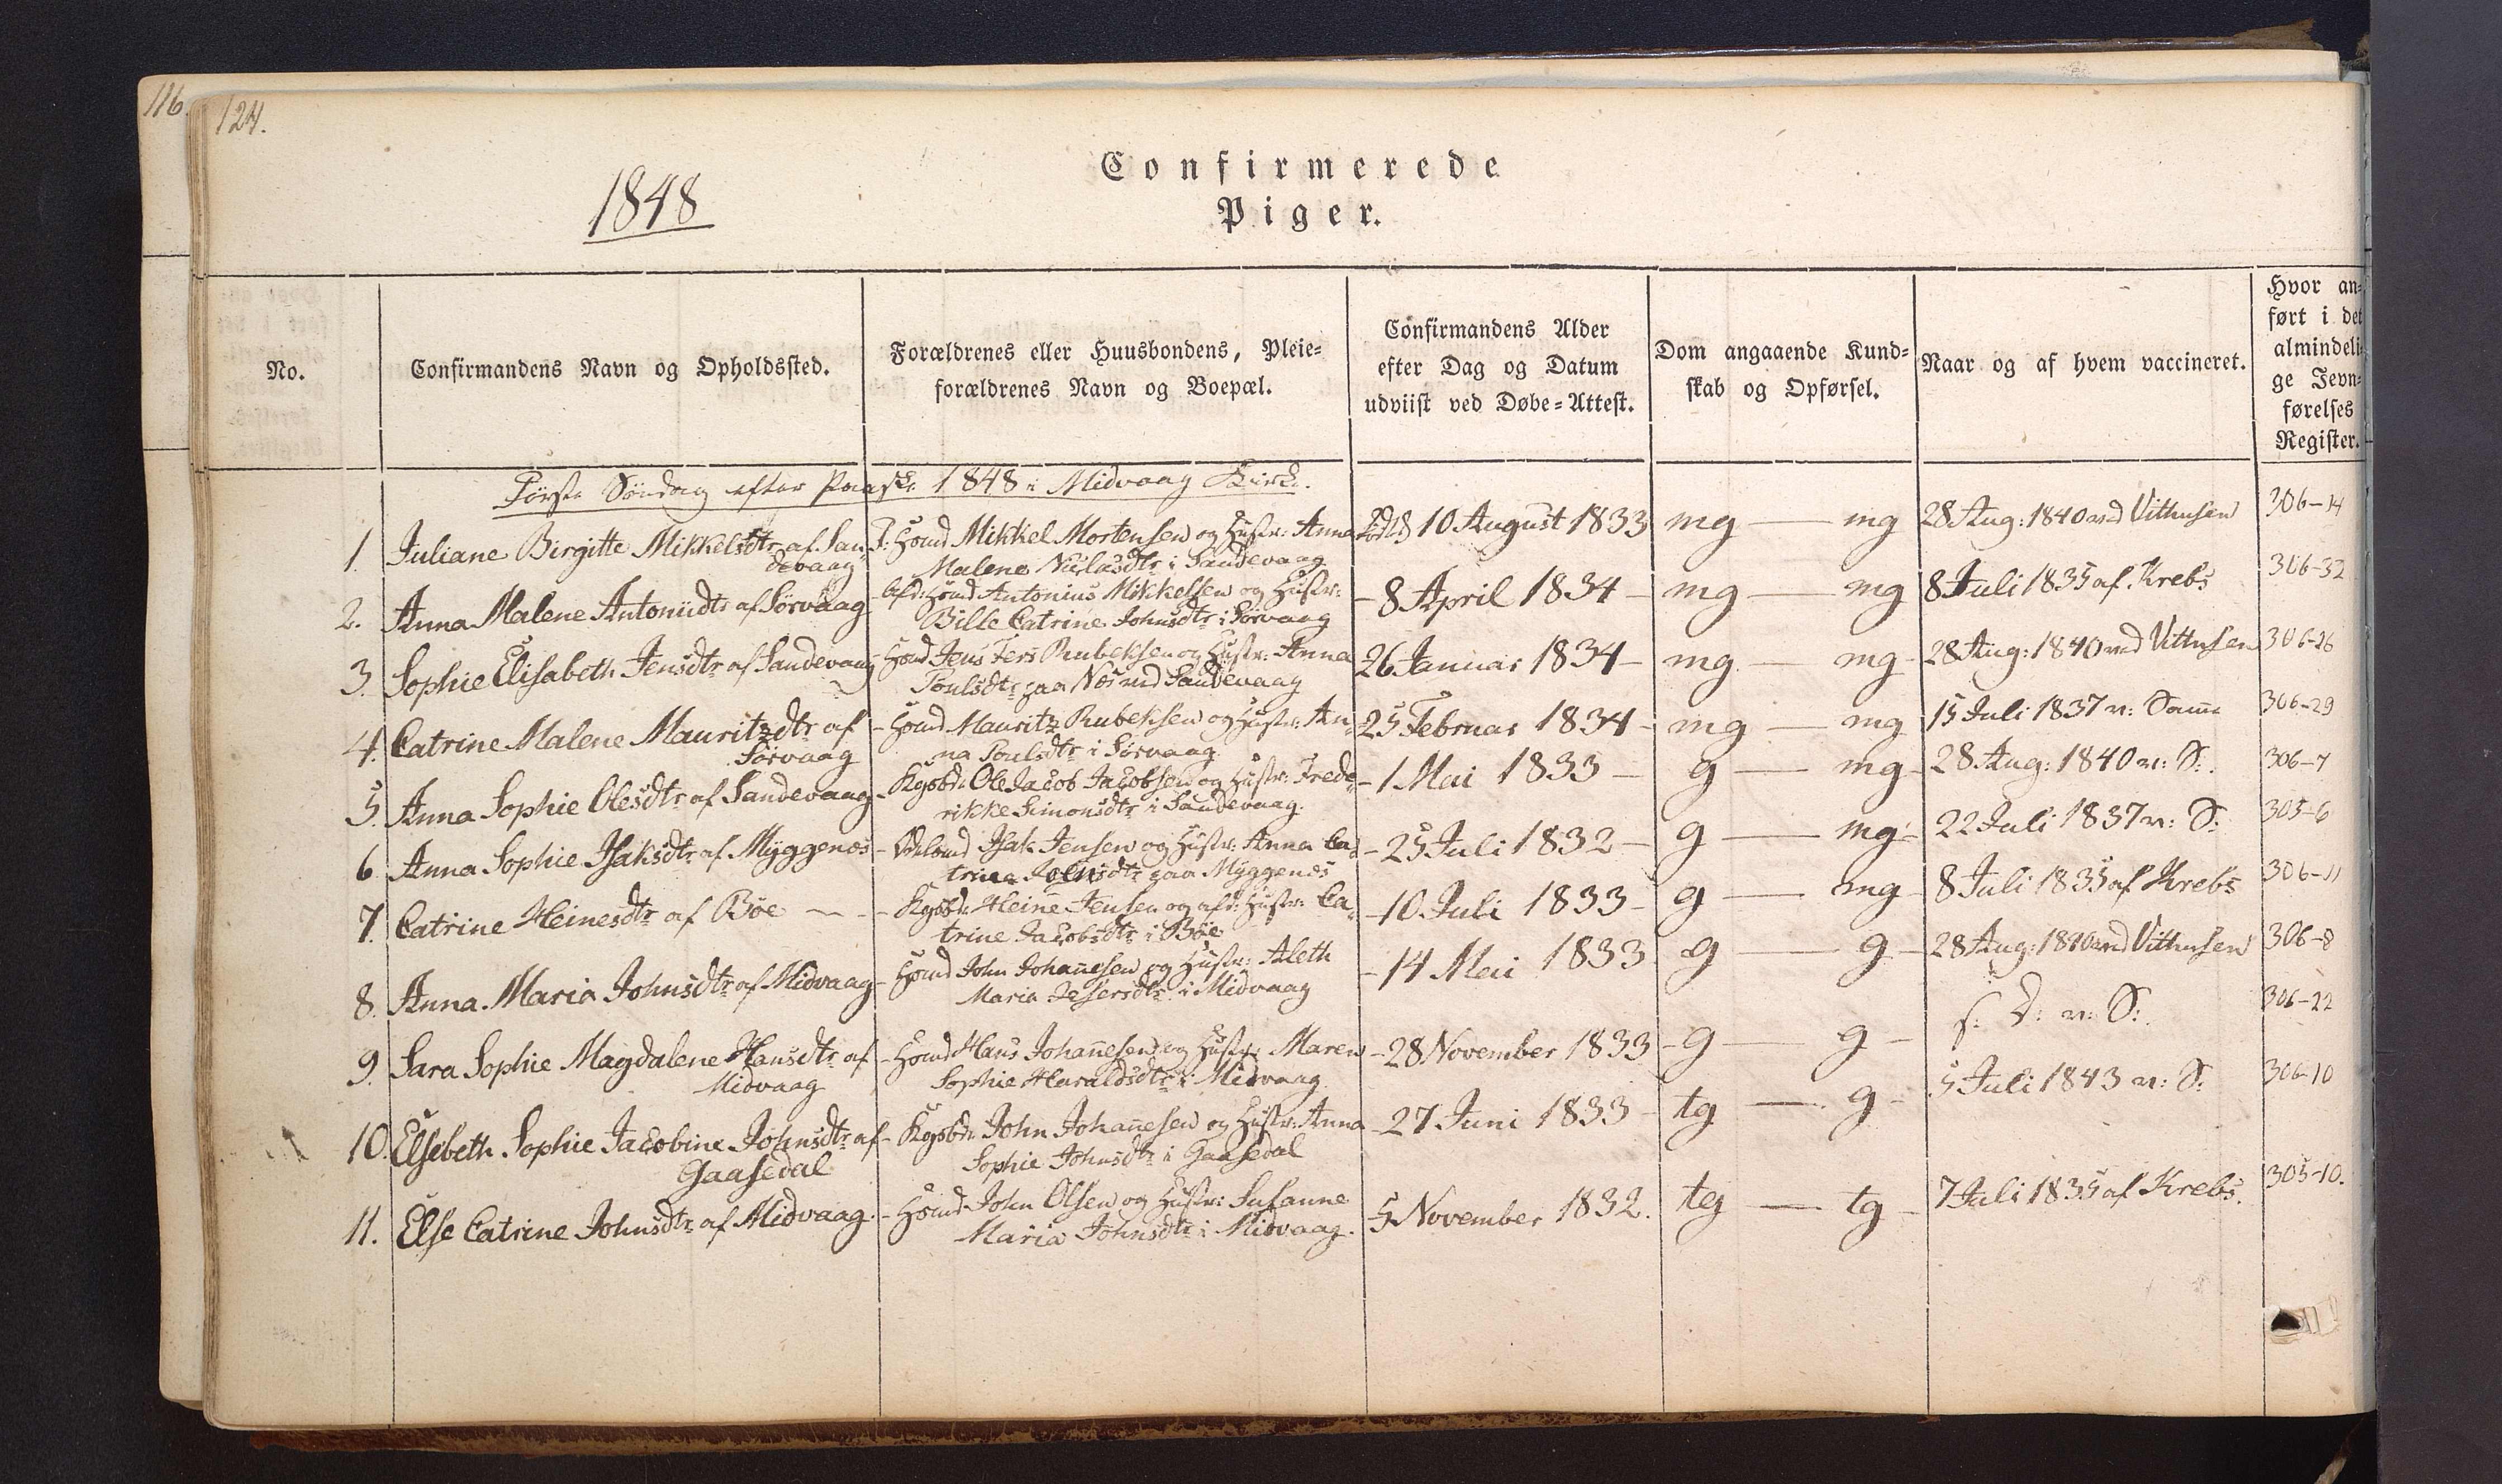 116.
124.
Confirmerede
1848
Piger.
No.
Confirmandens Navn og Opholdssted.
Forældrenes eller Huusbondens, Pleie=
forældrenes Navn og Boepæl.
Confirmandens Alder
efter Dag og Datum
udviist ved Døbe=Attest.
Dom angaaende Kund=
skab og Opførsel.
Naar og af hvem vaccineret.
Hvor an=
ført i det
almindeli=
ge Jevn=
førelses
Register.
Første Søndag efter Paaske 1848 i Midvaag Kirke.
1. Juliane Birgitte Mikkelsdtr. af San=
devaag
Hsmd Mikkel Mortensen og Hustr: Anna
Malene Niclasdtr i Sandevaag
10 August 1833
mg — mg
28 Aug: 1840 ved Vithusen
306-14
2. Anna Malene Antoniidtr af Sörvaag
Afd: Hsmd Antonius Mikkelsen og Hustr:
Bille Catrine Johnsdtr i Sörvaag
- 8 April 1834 -
mg — mg
8 Juli 1835 af Krebs
306-32
3. Sophie Elisabeth Jensdtr af Sandevaag
- Hsmd Jens Rubeksen og Hustr: Anna
Poulsdtr paa Næs ved Sandevaag
26 Januar 1834 -
mg — mg -
28 Aug: 1840 ved Vithusen
306-26
4. Catrine Malene Mauritzdtr af
Sörvaag
- Hsmd Mauritz Rubeksen og Hustr: An=
na Poulsdtr i Sörvaag
- 25 Februar 1834 -
mg — mg
15 Juli 1837 v: Samme
306-29
5. Anna Sophie Olesdtr af Sandevaag
- Kgsbd: Ole Jacob Jacobsen og Hustr: Frede=
rikke Simonsdtr i Sandevaag.
- 1 Mai 1833 -
g — mg -
28 Aug: 1840 v: S:.
306-7
6. Anna Sophie Isaksdtr af Myggenæs
- Isak Jensen og Hustr: Anna Ca=
trine paa Myggenæs
- 25 Juli 1832 -
g — mg -
22 Juli 1837 v: S:
305-6
7. Catrine Heinesdtr af Böe
- Kgsbd: Heine Jensen og afd: Hustr: Ca=
trine Jacobsdtr i Böe
- 10 Juli 1833 -
g — mg -
8 Juli 1835 af Krebs
306-11
8. Anna Maria Johnsdtr af Midvaag
- Hsmd John Johannesen og Hustr: Aleth
Maria i Midvaag
- 14 Mai 1833
g — g -
28 Aug: 1840 ved Vithusen
306-8
9. Sara Sophie Magdalene Hansdtr af
Midvaag
- Hsmd Hans Johannesen og Hustr: Maren
Sophie Haraldsdtr i Midvaag
- 28 November 1833
- g — g -
s: D: v: S:.
306-22
10. Elsebeth Sophie Jacobine Johnsdtr af
Gaasedal
- Kgsbd: John Johannesen og Hustr: Anna
Sophie Johnsdtr i Gaasedal
- 27 Juni 1833 -
tg — g -
5 Juli 1843 v: S:
306-10
11. Else Catrine Johnsdtr af Midvaag.
- Hsmd John Olsen og Hustr: Susanne
Maria Johnsdtr i Midvaag.
5 November 1832.
tg — tg -
7 Juli 1835 af Krebs.
305-10.